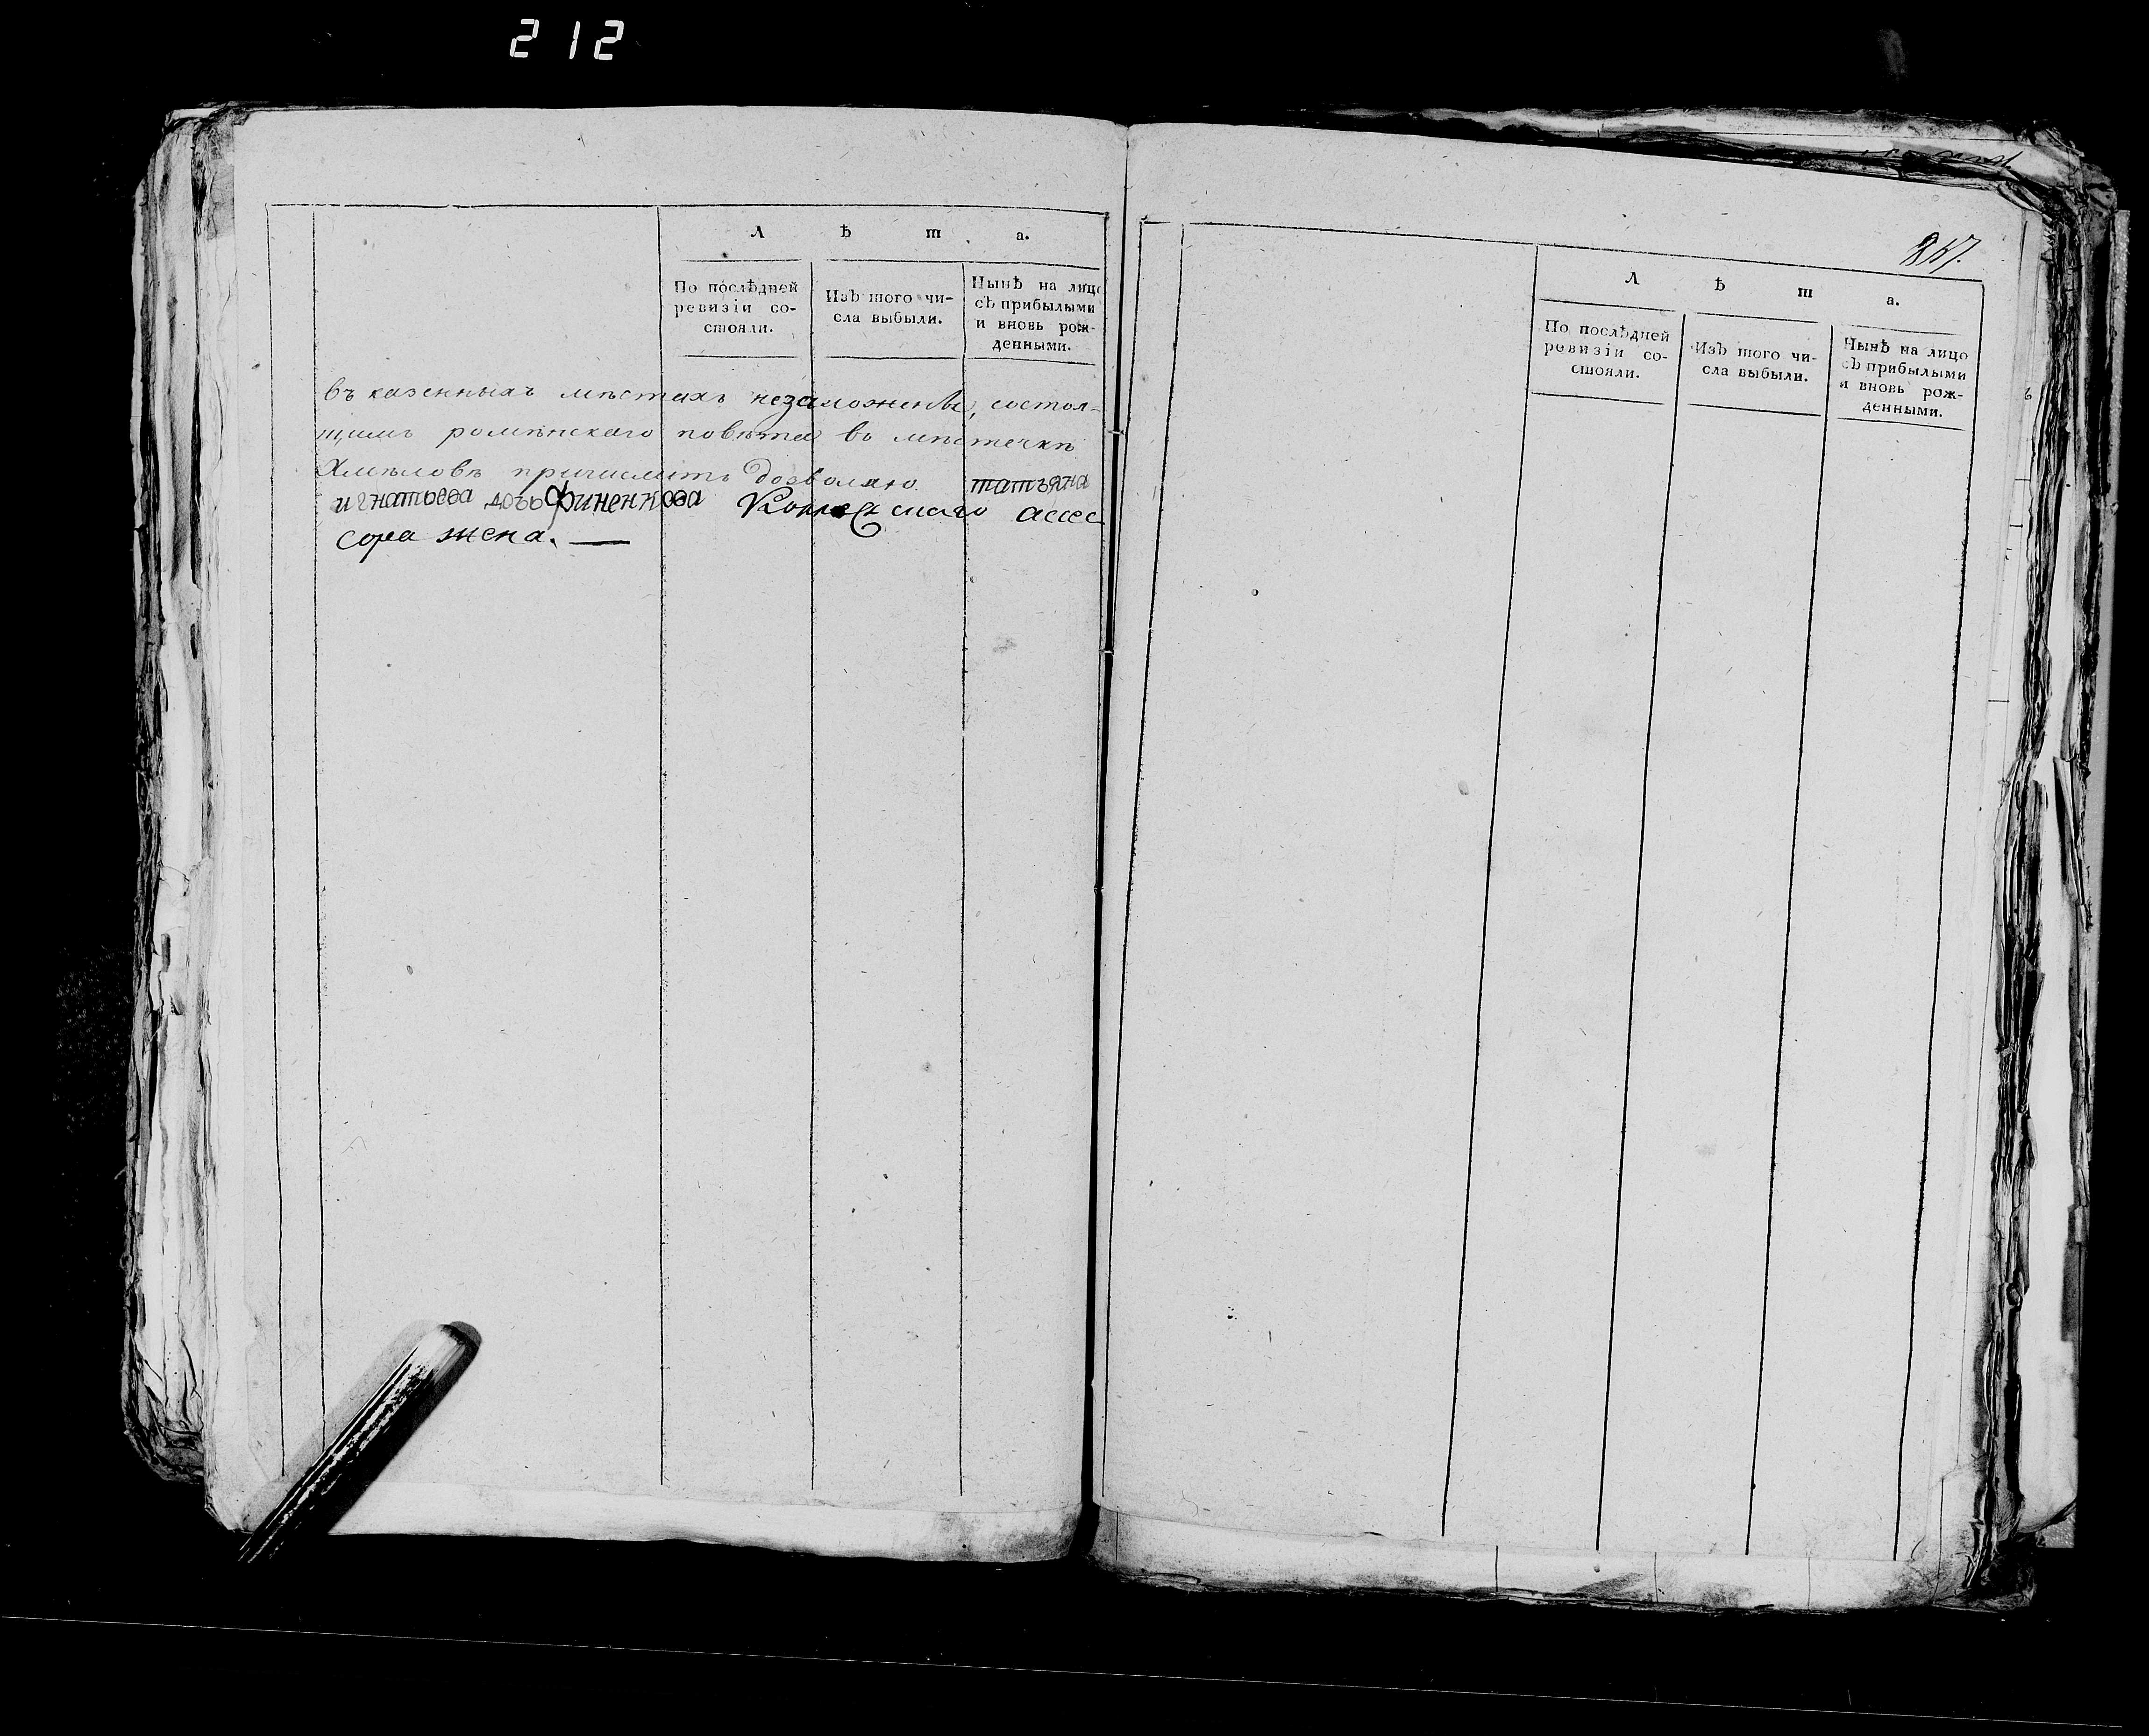 212
Л ѣ т а.
По послѣдней
ревизіи со-
стояли.
Изъ того чи-
сла выбыли.
Нынѣ на лицо
съ прибылыми
и вновь рож-
денными.
въ казенныхъ мѣстахъ незаложены, состоя-
щимъ роменскаго повѣта въ мѣстечкѣ
Хмѣловѣ причислить дозволяю. татъяна
игнатьева дочь Финенкова Колежскаго ассес
сора жена. —
Л ѣ т а.
По послѣдней
ревизіи со-
стояли.
Изъ того чи-
сла выбыли.
Нынѣ на лицо
съ прибылыми
и вновь рож-
денными.